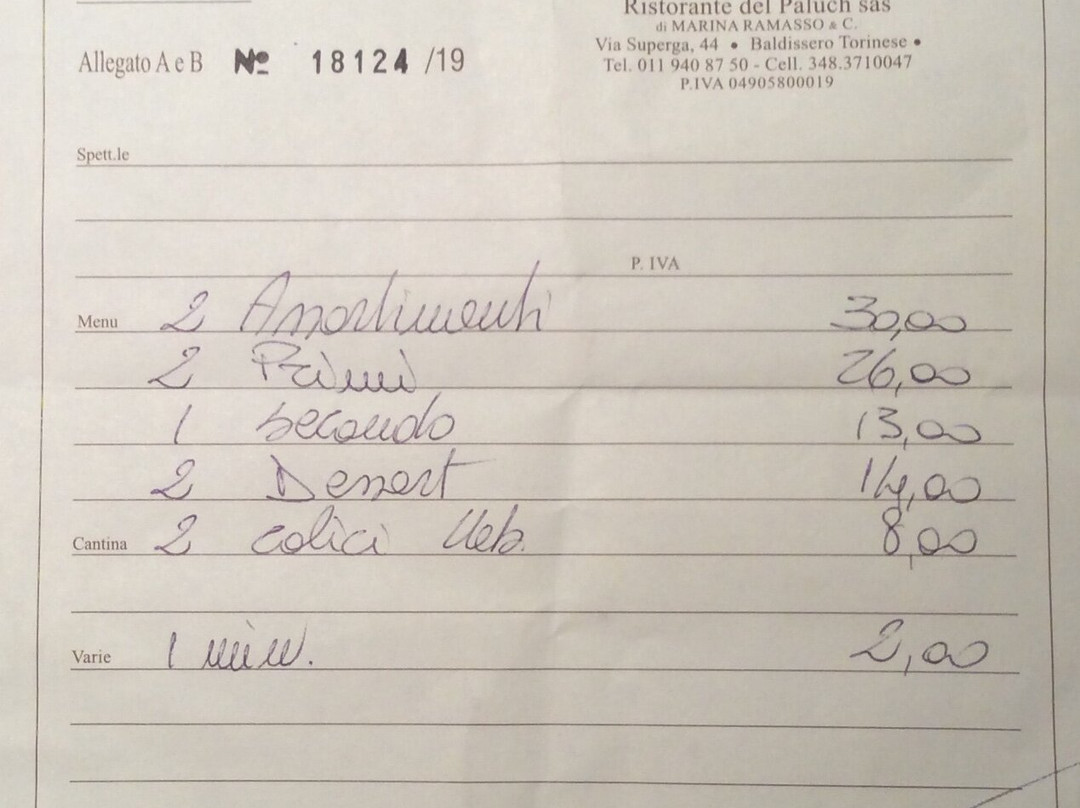 Ristorante del Paluch sas
di MARINA RAMASSO & C.
Via Superga, 44 • Baldissero Torinese •
Tel. 011 940 87 50 - Cell. 348.3710047
P.IVA 04905800019
Allegato A e B Nº 18124 /19
Spett.le
P. IVA
Menu 2 Assortimenti 30,00
2 Primi 26,00
1 secondo 13,00
2 Dessert 14,00
Cantina 2 calici Neb. 8,00
Varie 1 min. 2,00